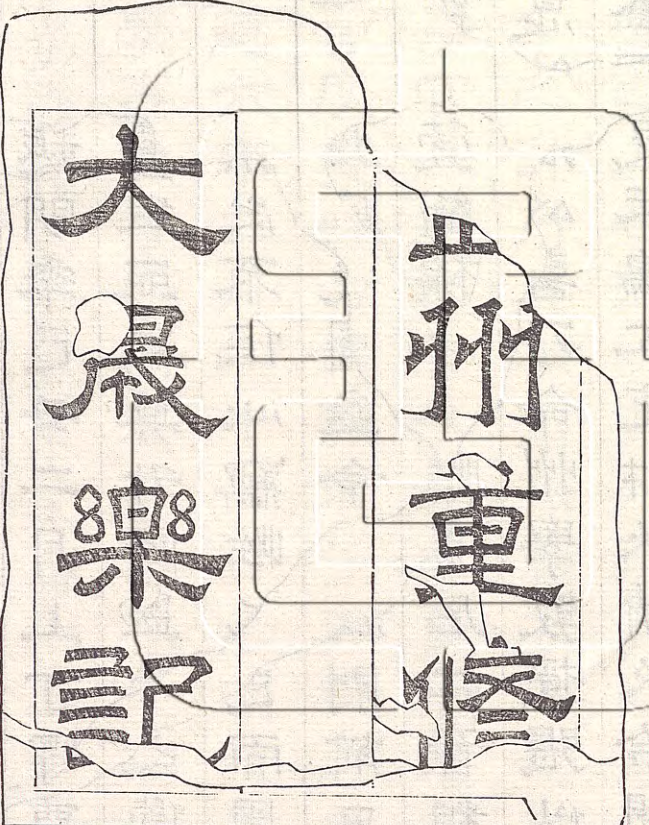 州重修
大晟樂記